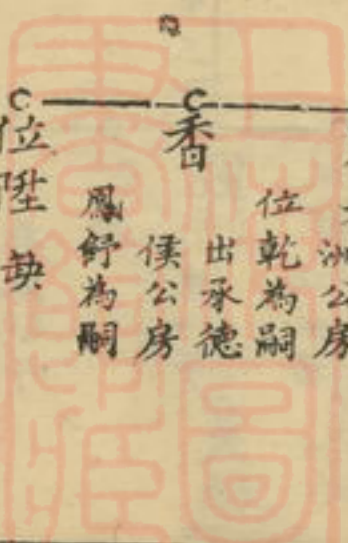 洲公房
位乾為嗣
出承德
香
侯公房
鳳舒為嗣
位陞 缺